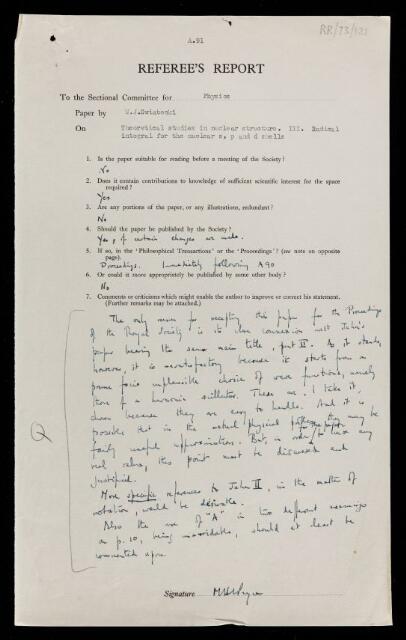 RR/73/121
A.91
REFEREE'S REPORT
To the Sectional Committee for Physics
Paper by W.J.Swiatecki
On Theoretical studies in nuclear structure. III. Radial
integral for the nuclear s, p and d shells
1. Is the paper suitable for reading before a meeting of the Society?
No
2. Does it contain contributions to knowledge of sufficient scientific interest for the space
required?
Yes
3. Are any portions of the paper, or any illustrations, redundant?
No
4. Should the paper be published by the Society?
Yes, if certain changes are made.
5. If so, in the 'Philosophical Transactions' or the 'Proceedings'? (see note on opposite
page).
Proceedings. Immediately following A90
6. Or could it more appropriately be published by some other body?
No
7. Comments or criticisms which might enable the author to improve or correct his statement.
(Further remarks may be attached.)
The only reason for accepting this paper for the Proceedings
of the Royal Society is its close connexion with Jahn's
paper bearing the same main title, part II. As it stands,
however, it is unsatisfactory because it starts from a
prima facie implausible choice of wave functions, namely
those of a harmonic oscillator. These are, I take it,
chosen because they are easy to handle. And it is
possible that in the actual physical they may be
fairly useful approximations. But, in order to have any
real value, this point must be discussed and
justified.
More specific references to Jahn II, in the matter of
notation, would be desirable.
Also the use of "A" in two different meanings
on p. 10, being unavoidable, should at least be
commented upon.
Q
Signature MHLPryce